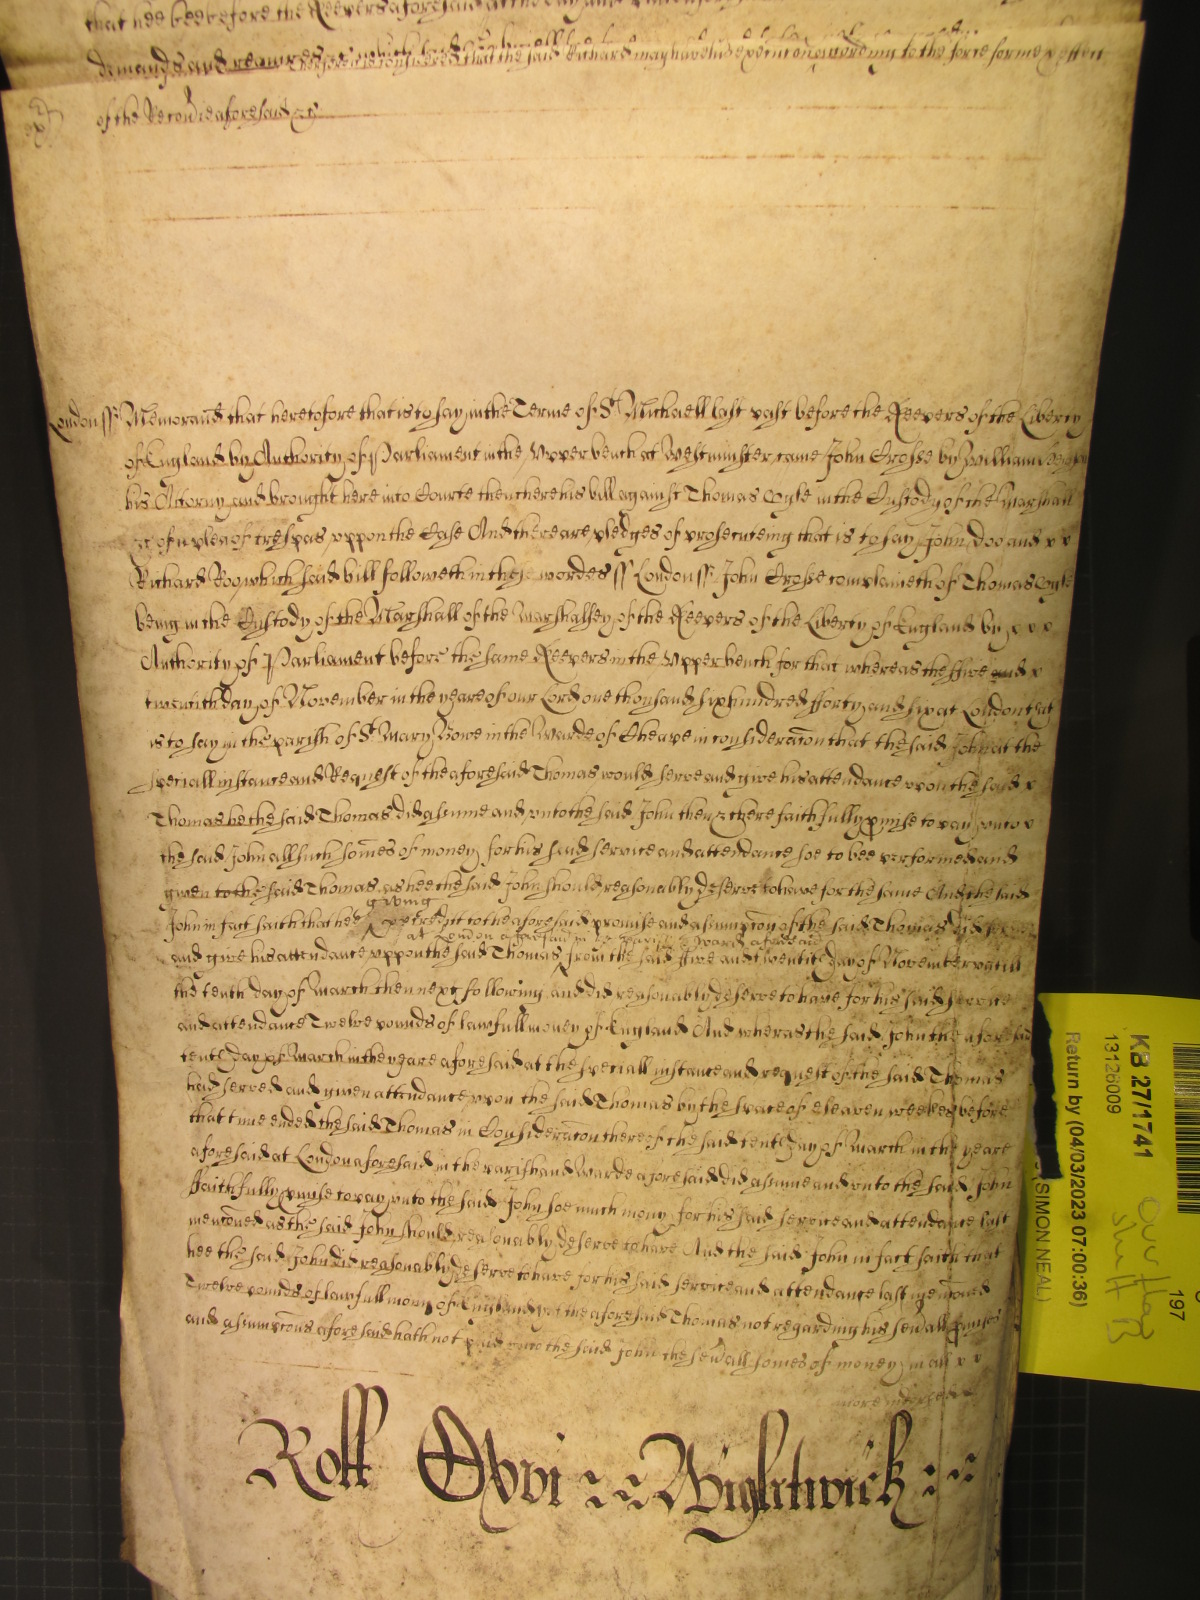 that hee bee before the Keepers aforesaid at
demands and requires
that the said Richard may have his execucon according to the force forme & effect
of the Recorde aforesaid &c
London ss Memorand that heretofore that is to say in the Terme of St Michaell last past before the Keepers of the Liberty
of England by Authority of Parliament in the Upper bench at Westminster came John Crosse by William
his Attorny and brought here into Courte then there his bill against Thomas Ogle in the Custody of the Marshall
&c of a plea of trespas uppon the Case And there are pledges of prosecuteing that is to say John Doo and x x
Richard Roo which said bill followeth in these wordes ss London ss John Crosse complaineth of Thomas Ogle
being in the Custody of the Marshall of the Marshalsey of the Keepers of the Liberty of England by x x x
Authority of Parliament before the same Keepers in the Upper bench for that whereas the ffive and x
twentith day of November in the yeare of our Lord one thousand sixhundred fforty and six at London that
is to say in the parish of St Mary Bowe in the Warde of Cheape in consideracon that the said John at the
speciall instance and Request of the aforesaid Thomas would serve and give his attendance upon the said x
Thomas he the said Thomas did assume and unto the said John then & there faithfully pmise to pay unto x
the said John all such somes of money for his said service and attendance soe to bee performed and
given to the said Thomas as hee the said John should reasonably deserve to have for the same And the said
giving
John in fact saith that hee credit to the aforesaid promise and assumpcon of the said Thomas did serve
at London aforesaid in the parish & Ward aforesaid
and give his attendance uppon the said Thomas from the said ffive and twentith day of November untill
the tenth day of March then next following and did reasonably deserve to have for his said service
and attendance Twelve pounds of lawfull money of England And wheras the said John the aforesaid
tenth day of March in the yeare aforesaid at the speciall instance and request of the said Thomas
had served and given attendance upon the said Thomas by the space of Eleaven weekes before
that time ended the said Thomas in Consideracon thereof the said tenth day of March in the yeare
aforesaid at London aforesaid in the parish and Warde aforesaid did assume and unto the said John
ffaithfully pmise to pay unto the said John soe much mony for his said service and attendance last
menconed as the said John should reasonably deserve to have And the said John in fact saith that
hee the said John did reasonably deserve to have for his said service and attendance last menconed
Twelve pounds of lawfull mony of England yet the aforesaid Thomas not regarding his sevall pmises
and assumpcons aforesaid hath not paid unto the said John the sevall somes of money in all x x
more indorsed
Roll Oxvi Wightwick
KB 27/1741
13126009
Return by (04/03/2023 07:00:36)
(SIMON NEAL)
197